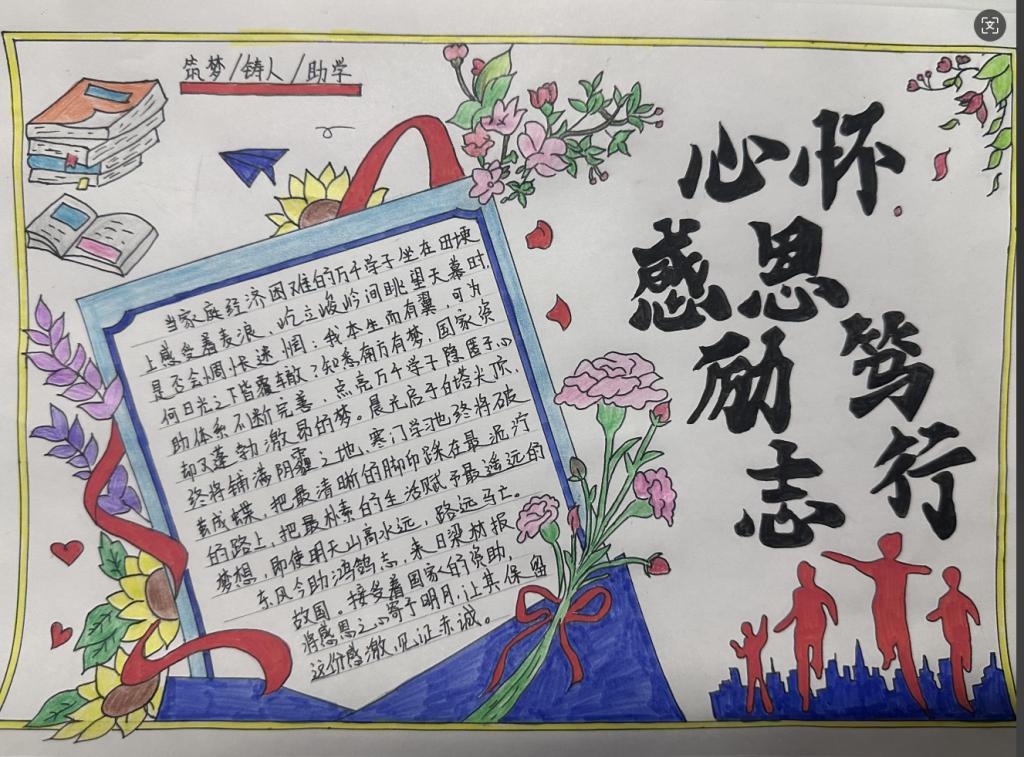 筑梦/铸人/助学
心怀
感恩
励志
笃行
当家庭经济困难的万千学子坐在田埂
上感受着麦浪、屹立峻岭间眺望天幕时,
是否会惆怅迷惘：我本生而有翼,可为
何日光之下皆覆辙?知悉有方有梦,国家资
助体系不断完善,点亮万千学子隐匿于心
却又蓬勃激昂的梦。晨光启于白塔尖顶、
终将铺满阴霾之地、寒门学池终将破
茧成蝶、把最清晰的脚印踩在最泥泞
的路上,把最朴素的生活赋予最遥远的
梦想,即使明天山高水远,路远马亡。
东风今助鸿鹄志,来日梁材报
故国。接受着国家的资助,
将感恩之心寄予明月,让其保留
这份感激,见证赤诚。